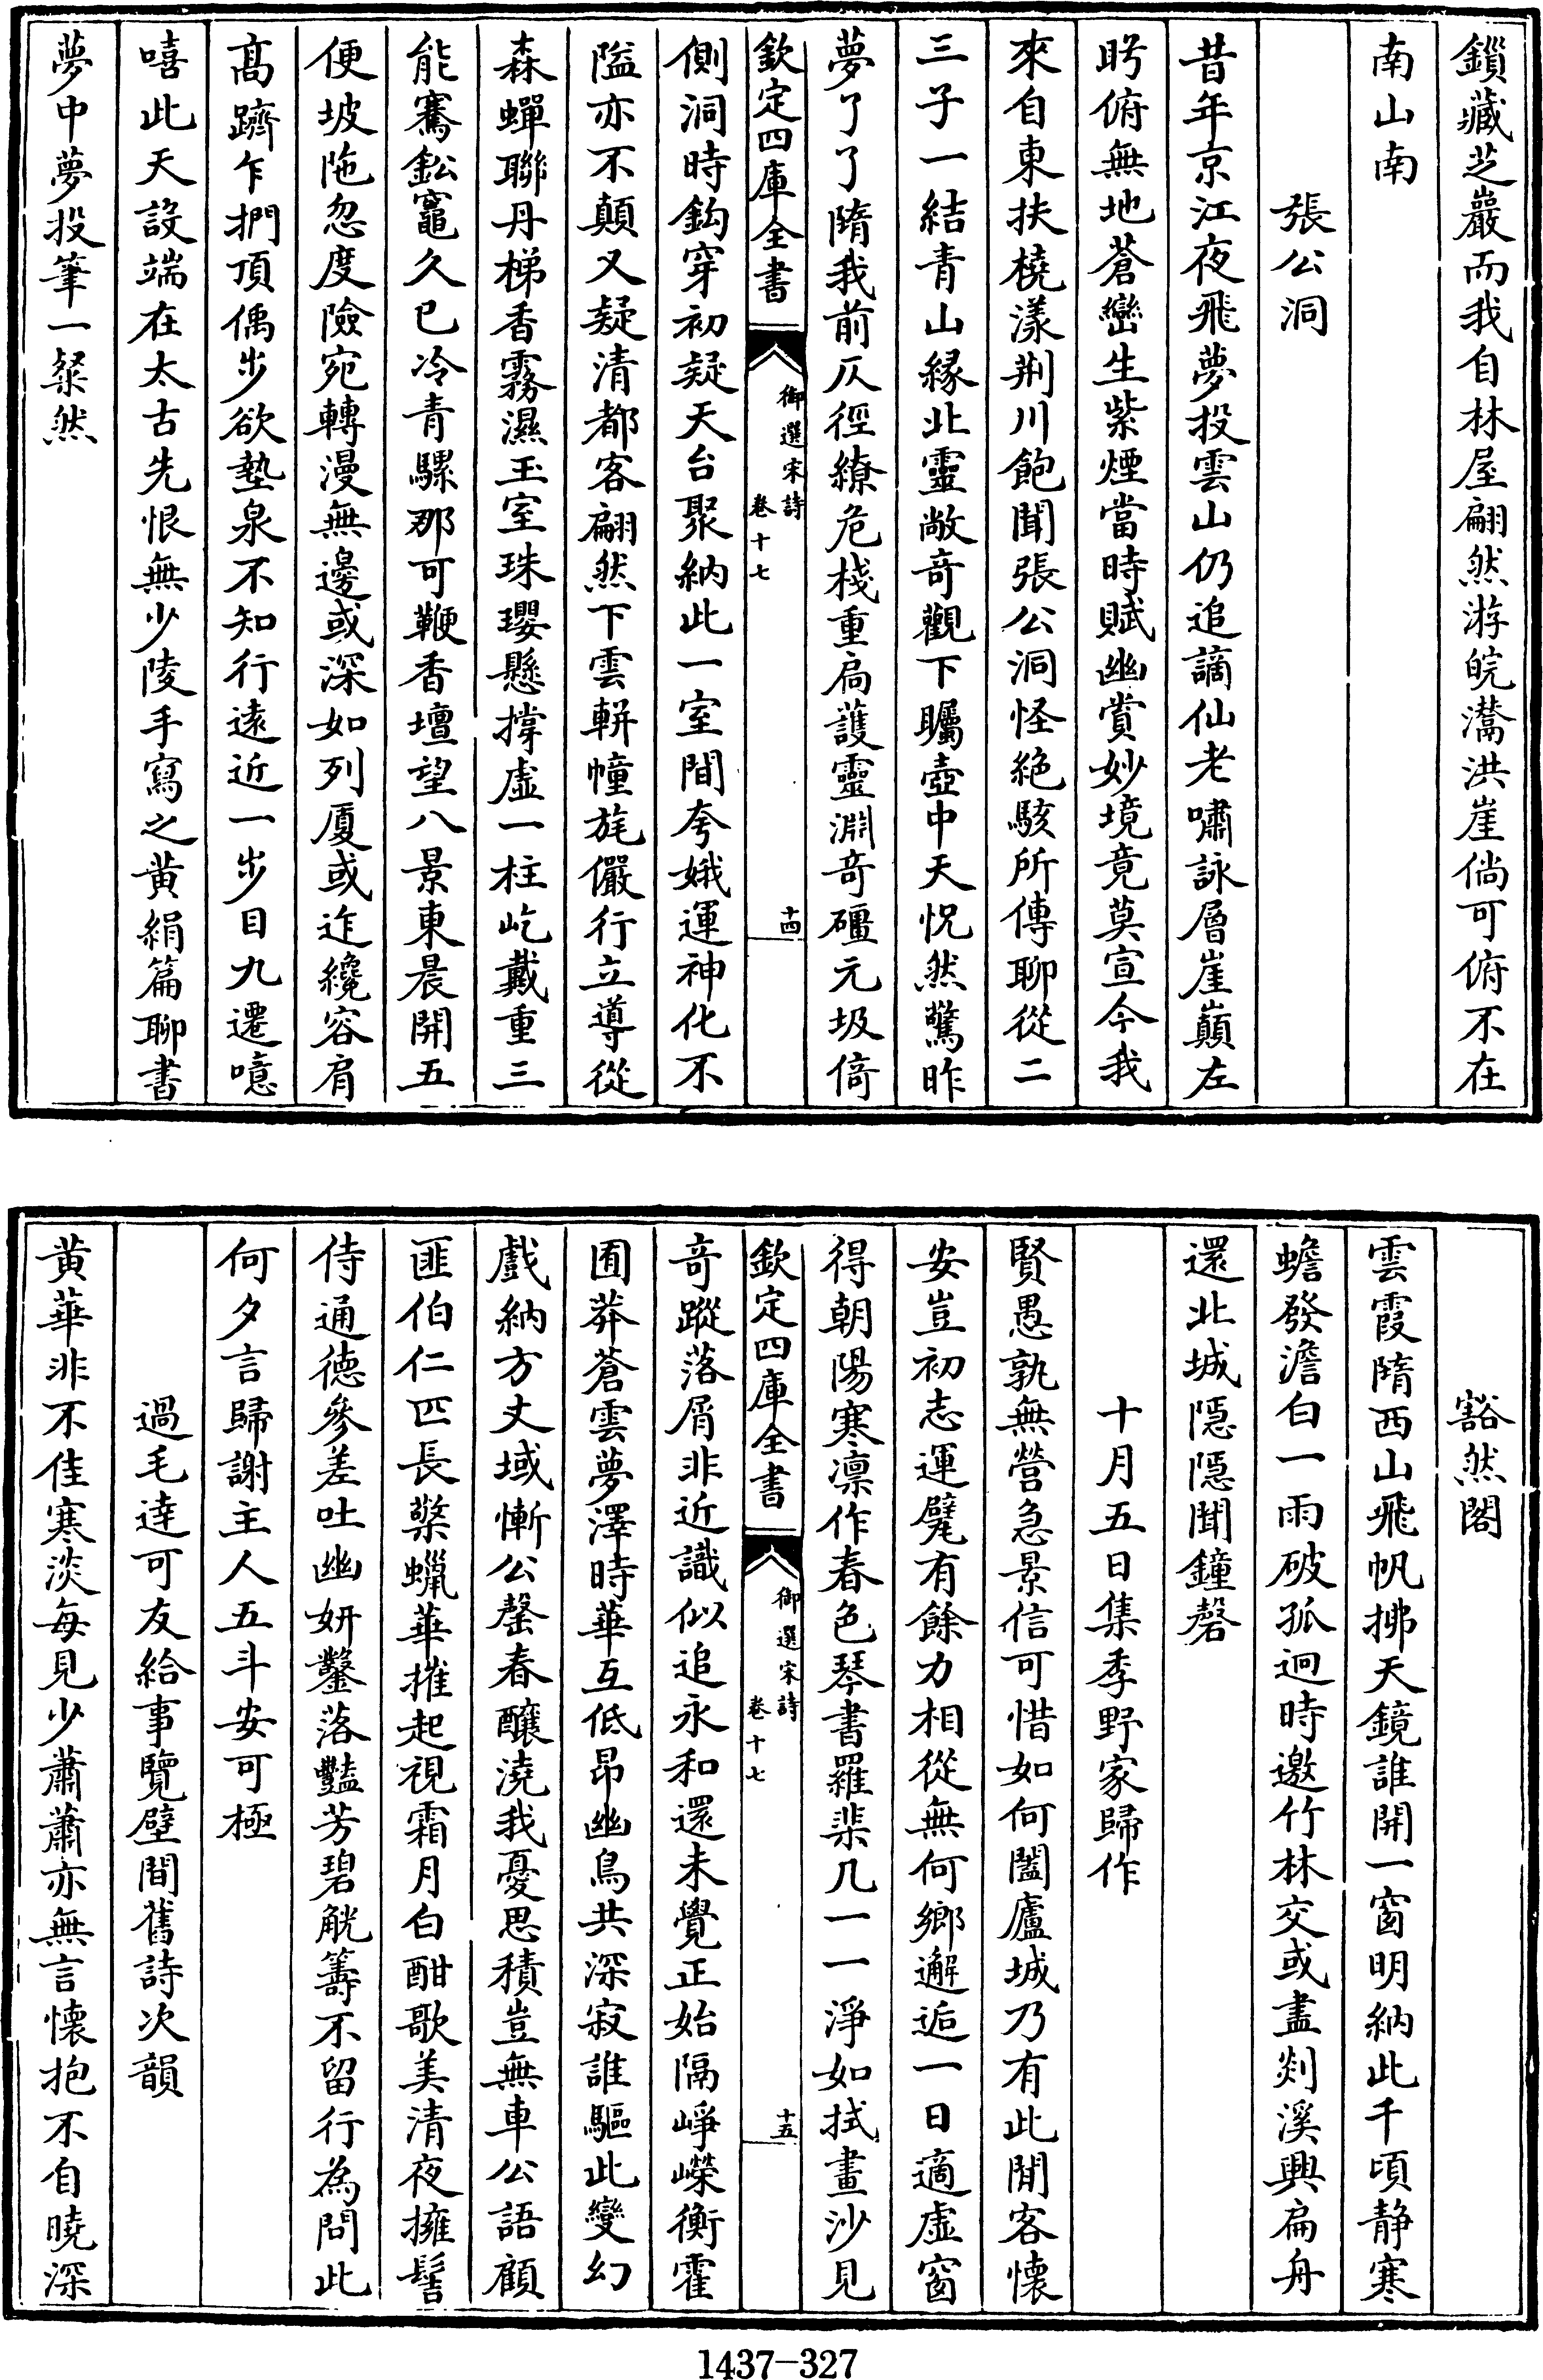 鎻藏芝巖而我自林屋翩然游皖灊洪崖倘可俯不在
南山南
張公洞
昔年京江夜飛夢投雲山仍追謫仙老嘯詠層崖巔左
眄俯無地蒼巒生紫煙當時賦幽賞妙境竟莫宣今我
來自東扶橈漾荆川飽聞張公洞怪絶駭所傳聊從二
三子一結青山緣北靈敞竒觀下矚壺中天怳然驚昨
夢了了隋我前仄徑繚危棧重扃護靈淵竒礓元圾倚
欽定四庫全書
御選宋詩
卷十七
十四
側洞時鈎穿初疑天台聚納此一室間夸娥運神化不
隘亦不顛又疑清都客翩然下雲軿幢旄儼行立導從
森蟬聯丹梯香霧濕玉室珠瓔懸撐虛一柱屹戴重三
能騫鈆竈久已冷青騾那可鞭香壇望八景東晨開五
便坡陁忽度險宛轉漫無邊或深如列厦或迮纔容肩
髙躋乍捫頂偶步欲墊泉不知行逺近一步目九遷噫
嘻此天設端在太古先恨無少陵手寫之黄絹篇聊書
夢中夢投筆一粲然
豁然閣
雲霞隋西山飛帆拂天鏡誰開一窗明納此千頃静寒
蟾發澹白一雨破孤迥時邀竹林交或盡剡溪興扁舟
還北城隱隱聞鐘磬
十月五日集季野家歸作
賢愚孰無營急景信可惜如何闔廬城乃有此閒客懷
安豈初志運甓有餘力相從無何鄉邂逅一日適虛窗
得朝陽寒凛作春色琴書羅棐几一一淨如拭畫沙見
欽定四庫全書
御選宋詩
卷十七
十五
竒蹤落屑非近識似追永和還未覺正始隔崢嶸衡霍
囿莽蒼雲夢澤時華互低昻幽鳥共深寂誰驅此變幻
戲納方丈域慚公罄春釀澆我憂思積豈無車公語顧
匪伯仁匹長檠蠟華摧起視霜月白酣歌美清夜擁髻
侍通德參差吐幽妍鑿落豔芳碧觥籌不留行為問此
何夕言歸謝主人五斗安可極
過毛逹可友給事覽壁間舊詩次韻
黄華非不佳寒淡每見少蕭蕭亦無言懷抱不自曉深
1437-327